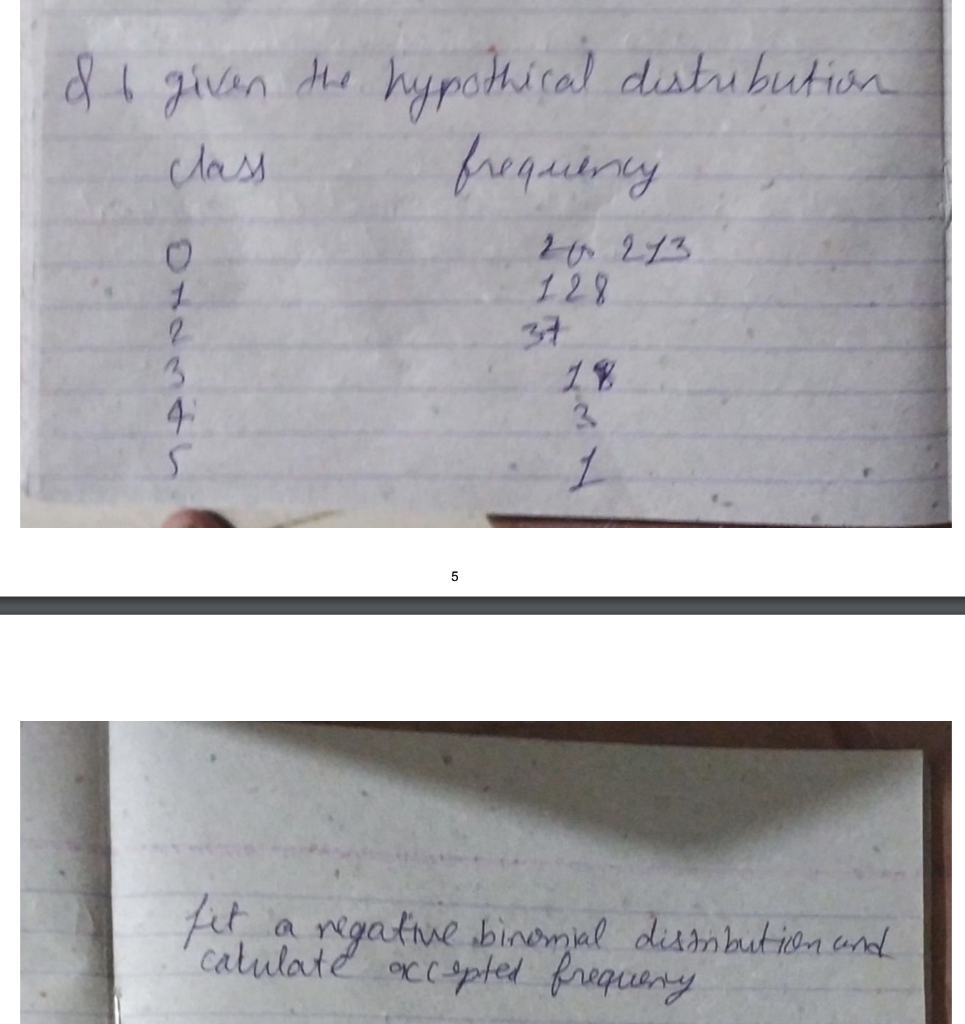 Q 6 given the hypothical distribution
class frequency
0 213
1 128
2 37
3 18
4 3
5 1
5
fit a negative binomial distribution and
calulate accepted frequency